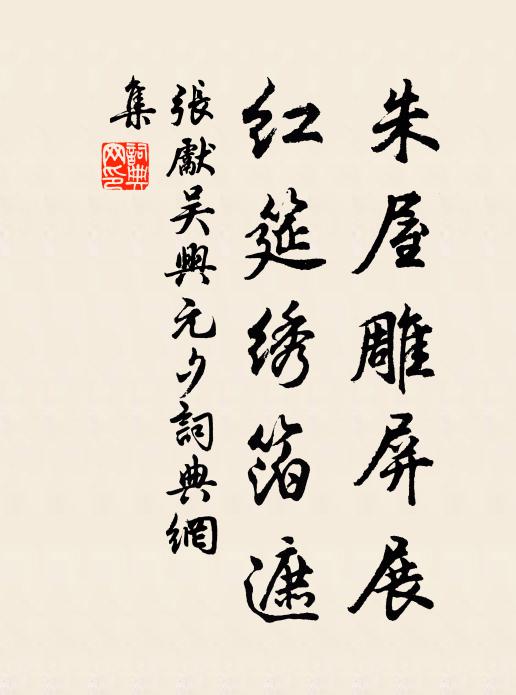 朱屋雕屏展
红筵绣箔遮
張獻吴興元夕詞典網
集
詞典網印